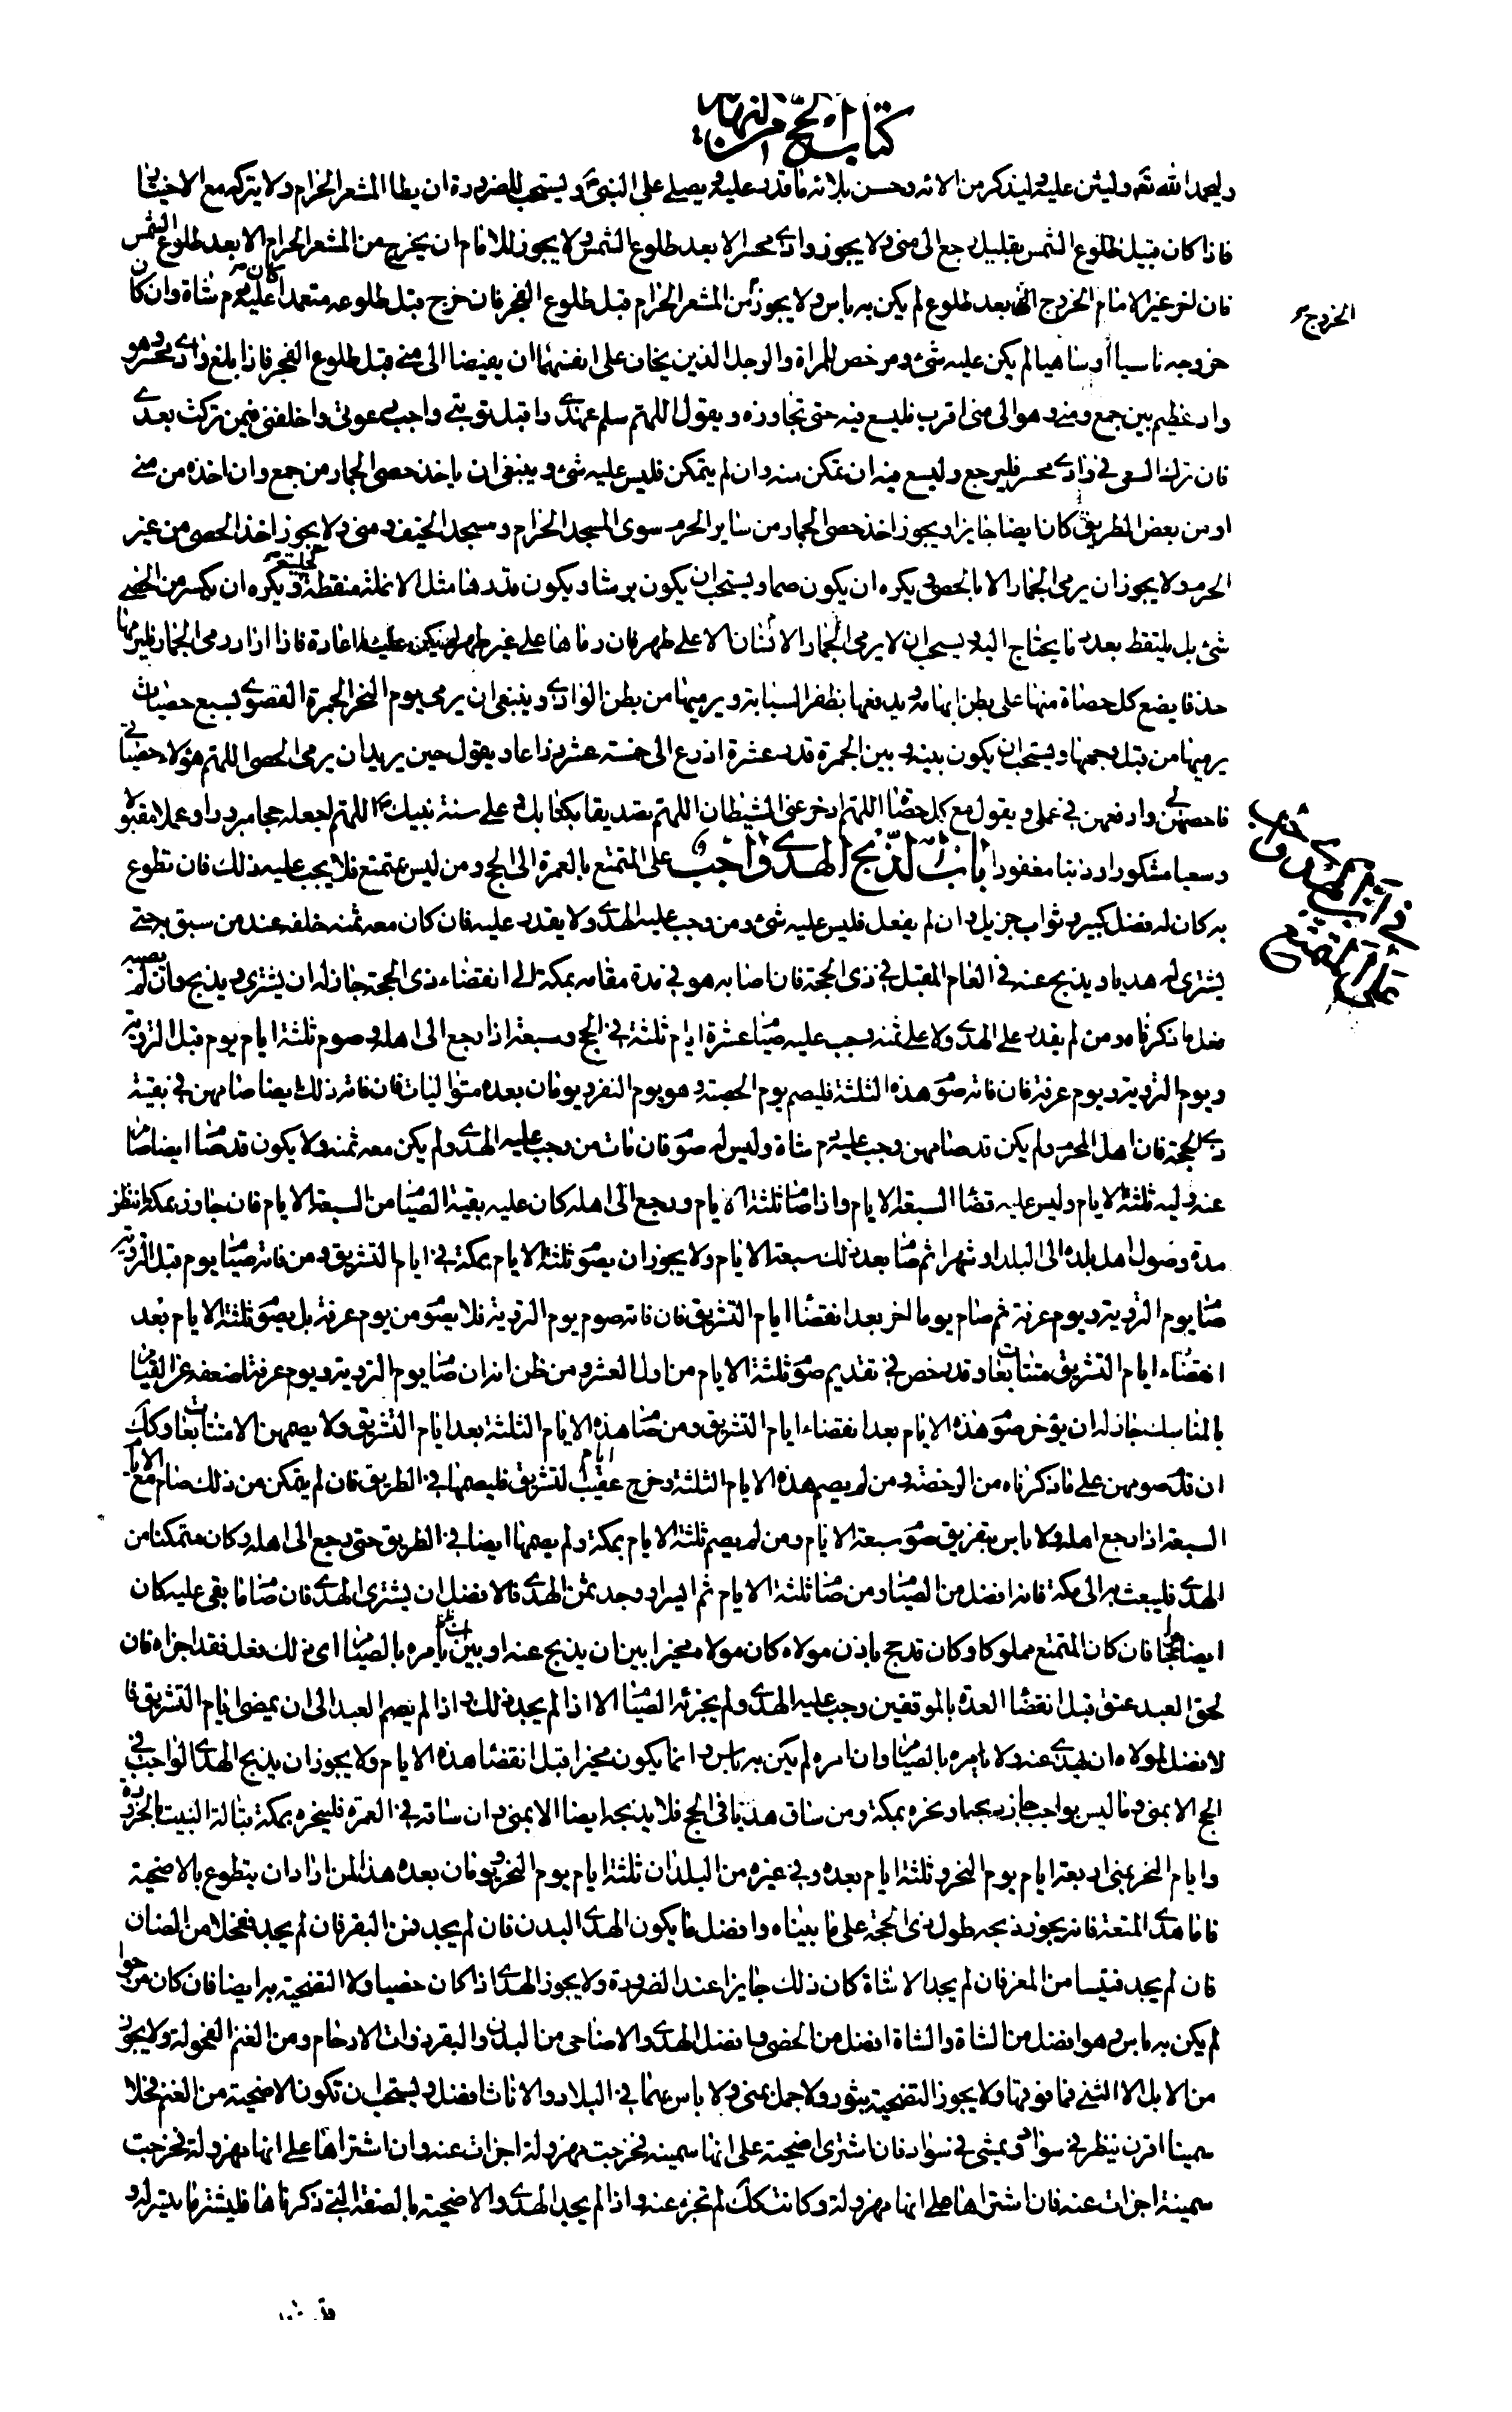 كتاب الحج من النهاية
وليحمد الله تعـ وليثن عليه وليذكر من الائه وحسن بلائه ما قدر عليه ويصلي على النبي ص ويستحب للصرورة ان يطا المشعر الحرام ولا يتركه مع الاختيار
فاذا كان قبيل طلوع الشمس بقليل رجع الى منى ولا يجوز وادي محسر الا بعد طلوع الشمس ولا يجوز للامام ان يخرج من المشعر الحرام الا بعد طلوع الشمس
فان اخر غير الامام الخروج الى بعد طلوع لم يكن به باس ولا يجوز من المشعر الحرام قبل طلوع الفجر فان خرج قبل طلوعه متعمدا كان عليه دم شاة وان كان
الخروج
خروجه ناسيا او ساهيا لم يكن عليه شئ ومرخص للمراة والرجل الذين يخاف على انفسهما ان يفيضا الى منى قبل طلوع الفجر فاذا بلغ وادي محسر وهو
واد عظيم بين جمع ومنى وهو الى منى اقرب فليسع فيه حتى تجاوزه ويقول اللهم سلم عهدي واقبل توبتي واجب دعوتي واخلفني فيمن تركت بعدي
فان ترك السعي في وادي محسر فليرجع وليسع فيه ان تمكن منه وان لم يتمكن فليس عليه شئ وينبغي ان ياخذ حصى الجمار من جمع وان اخذه من منى
او من بعض الطريق كان ايضا جايزا ويجوز اخذ حصى الجمار من ساير الحرم سوى المسجد الحرام ومسجد الخيف ومنى ولا يجوز اخذ الحصى من غير
الحرم ولا يجوز ان يرمى الجمار الا بالحصى ويكره ان يكون صما ويستحب ان يكون برشا ويكون قدرها مثل الانملة منقطة ويكره ان يكسر من الحصى
شئ بل يلتقط بعدد ما يحتاج اليه ويستحب ان لا يرمى الجمار الانسان الا على طهر فان رماها على غير طهر لم يكن عليه اعادة فاذا اراد رمى الجمار فليرمها
خذفا يضع كل حصاة منها على بطن ابهامه ويدفعها بظفر السبابة ويرميها من بطن الوادي وينبغي ان يرمى يوم النحر الجمرة القصوى بسبع حصيات
يرميها من قبل وجهها ويستحب ان يكون بينه وبين الجمرة قدر عشرة اذرع الى خمسة عشر ذراعا ويقول حين يريد ان يرمى الحصى اللهم هؤلاء حصياتي
فاحصهن لي وارفعهن في عملي ويقول مع كل حصاة اللهم ادحر عني الشيطان اللهم تصديقا بكتابك وعلى سنة نبيك ص اللهم اجعله حجا مبرورا وعملا مقبولا
وسعيا مشكورا وذنبا مغفورا باب الذبح الهدي واجب على المتمتع بالعمرة الى الحج ومن ليس بمتمتع فلا يجب عليه ذلك فان تطوع
في ان الهدي واجب
على المتمتع
به كان له فضل كبير وثواب جزيل وان لم يفعل فليس عليه شئ ومن وجب عليه الهدي ولا يقدر عليه فان كان معه ثمنه خلفه عند من يثق به حتى
يشترى له هديا ويذبح عنه في العام المقبل في ذي الحجة فان اصابه هو في مدة مقامه بمكة الى انقضاء ذي الحجة جاز له ان يشترى ويذبح وان لم يصبه
فعل ما ذكرناه ومن لم يقدر على الهدي ولا على ثمنه وجب عليه صيام عشرة ايام ثلثة في الحج وسبعة اذا رجع الى اهله وصوم ثلثة ايام يوم قبل التروية
ويوم التروية ويوم عرفة فان فاته صوم هذه الثلثة فليصم يوم الحصبة وهو يوم النفر ويومان بعده متواليات فان فاته ذلك ايضا صامهن في بقية
ذي الحجة فان اهل المحرم ولم يكن قد صامهن وجب عليه دم شاة وليس له صوم فان مات من وجب عليه الهدي ولم يكن معه ثمنه ولا يكون قد صام ايضا صام
عنه وليه ثلثة الايام وليس عليه قضاء السبعة الايام واذا صام ثلثة الايام ورجع الى اهله كان عليه بقية الصيام من السبعة الايام فان جاوز بمكة انتظر
مدة وصول اهل بلده الى البلد او شهرا ثم صام بعد ذلك سبعة الايام ولا يجوز ان يصوم ثلثة الايام بمكة في ايام التشريق ومن فاته صيام يوم قبل التروية
صام يوم التروية ويوم عرفة ثم صام يوما اخر بعد انقضاء ايام التشريق فان فاته صوم يوم التروية فلا يصوم من يوم عرفة بل يصوم ثلثة الايام بعد
انقضاء ايام التشريق متتابعا وقد رخص في تقديم صوم ثلثة الايام من اول العشر ومن ظن انه ان صام يوم التروية ويوم عرفة اضعفه عن القيام
بالمناسك جاز له ان يؤخر صوم هذه الايام بعد انقضاء ايام التشريق ومن صام هذه الايام الثلثة بعد ايام التشريق ولا يصمهن الا متتابعا وكك
ان قدم صومهن على ما ذكرناه من الرخصة ومن لم يصم هذه الايام الثلثة وخرج عقيب ايام التشريق فليصمها في الطريق فان لم يتمكن من ذلك صام مع الايام
السبعة اذا رجع اهله ولا باس بتفريق صوم سبعة الايام ومن لم يصم ثلثة الايام بمكة ولم يصمها ايضا في الطريق حتى رجع الى اهله وكان متمكنا من
الهدي فليبعث به الى مكة فانه افضل من الصيام ومن صام ثلثة الايام ثم ايسر ووجد ثمن الهدي فالافضل ان يشترى الهدي فان صام ما بقى عليه كان
ايضا مجزيا فان كان المتمتع مملوكا وكان قد حج باذن مولاه كان مولاه مخيرا بين ان يذبح عنه او بين ان يامره بالصيام اي ذلك فعل فقد اجزاه فان
لحق العبد عتق قبل انقضاء العدة بالموقفين وجب عليه الهدي ولم يجزئه الصيام الا اذا لم يجد ذلك واذا لم يصم العبد الى ان يمضى ايام التشريق فا
لافضل لمولاه ان يهدي عنه ولا يامره بالصيام وان امره لم يكن به باس وانما يكون مخيرا قبل انقضاء هذه الايام ولا يجوز ان يذبح الهدي الواجب في
الحج الا بمنى وما ليس بواجب جاز ذبحها ونحره بمكة ومن ساق هديا في الحج فلا يذبحه ايضا الا بمنى وان ساقه في العمرة فلينحره بمكة قبالة البيت بالحزورة
وايام النحر بمنى اربعة ايام يوم النحر وثلثة ايام بعده وفي غيره من البلدان ثلثة ايام يوم النحر ويومان بعده هذا لمن اراد ان يتطوع بالاضحية
فاما هدي المتعة فانه يجوز ذبحه طول ذي الحجة على ما بيناه وافضل ما يكون الهدي البدن فان لم يجد فمن البقر فان لم يجد ففحلا من الضان
فان لم يجد فتيسا من المعز فان لم يجد الا شاة كان ذلك جايزا عند الضرورة ولا يجوز الهدي اذا كان خصيا ولا التضحية به ايضا فان كان موجوا
لم يكن به باس وهو افضل من الشاة والشاة افضل من الخصى وافضل الهدي والاضاحى من البدن والبقر ذوات الارحام ومن الغنم الفحولة ولا يجوز
من الابل الا الثني فما فوقها ولا يجوز التضحية بثور ولا جمل بمنى ولا باس بهما في البلاد والاناث افضل ويستحب ان تكون الاضحية من الغنم فحلا
سمينا اقرن ينظر في سواد ويمشي في سواد فان اشترى اضحية على انها سمينه فخرجت مهزولة اجزات عنه وان اشتراها على انها مهزولة فخرجت
سمينة اجزات عنه فان اشتراها على انها مهزولة وكانت كك لم تجزه عنه واذا لم يجد الهدي والاضحية بالصفة التي ذكرناها فليشتر ما تيسر له و